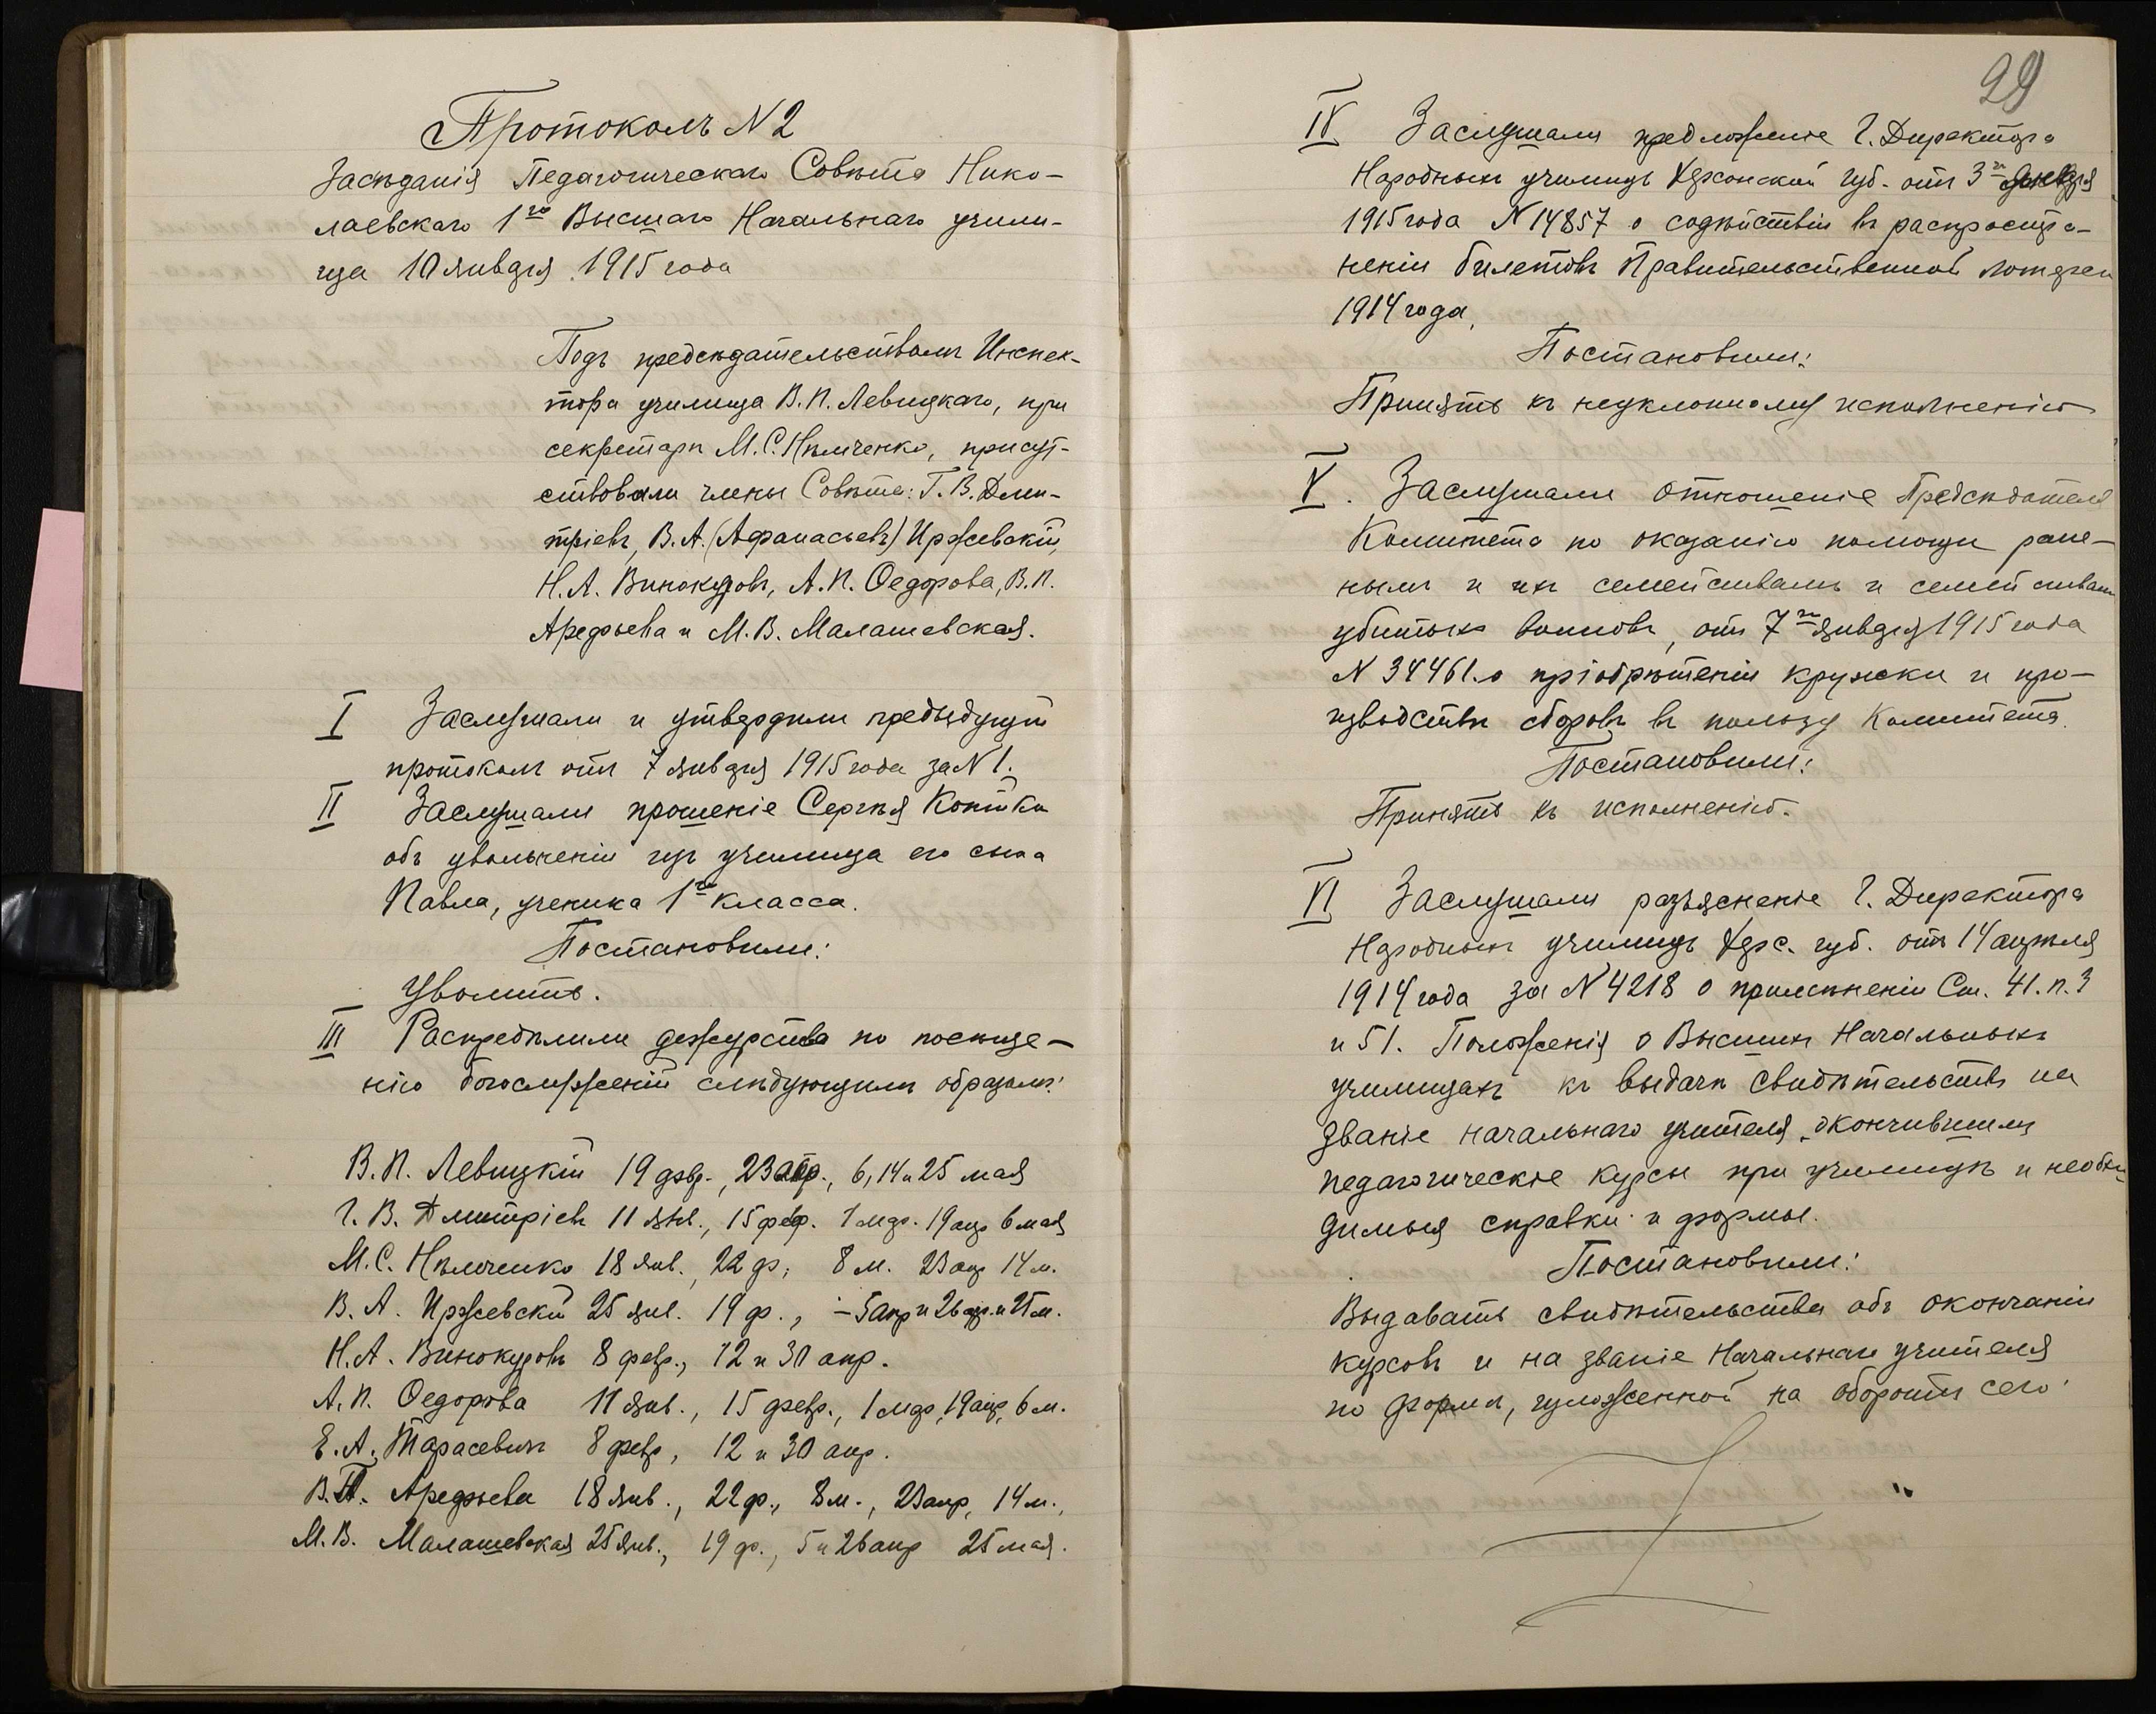 Протоколъ N 2
Засѣданія Педагогическаго Совѣта Нико-
лаевскаго 1го Высшаго Начальнаго учили-
ща 10 января 1915 года
Подъ предсѣдательствомъ Инспек-
тора училища В. П. Левицкаго, при
секретарѣ М. С. Нѣмченко, присут-
ствовали члены Совѣта: Г. В. Дми-
тріевъ, В. А. (Афанасьевъ) Иржевскій,
Н. А. Винокуровъ, А. П. Ѳедорова, В. П.
Арефьева и М. В. Малашевская.
I Заслушали и утвердили предыдущій
протоколъ отъ 7 января 1915 года за N 1.
II Заслушали прошеніе Сергѣя
объ увольненіи изъ училища его сына
Павла, ученика 1го класса.
Постановили:
Уволить.
III Распредѣлили дежурства по посѣще-
нію богослуженій слѣдующимъ образомъ:
В. П. Левицкій 19 фвр., 23 апр., 6, 14 и 25 мая
Г. В. Дмитріевъ 11 янв., 15 февр. 1 мар. 19 апр 6 мая
М. С. Нѣмченко 18 янв., 22 ф., 8 м. 23 апр 14 м.
В. А. Иржевскій 25 янв. 19 ф., – 5 апр и 26 апр. и 25 м.
Н. А. Винокуровъ 8 февр., 12 и 30 апр.
А. П. Ѳедорова 11 янв., 15 февр., 1 мар, 19 апр, 6 м.
Е. А. Тарасевичъ 8 февр, 12 и 30 апр.
В. П. Арефьева 18 янв., 22 ф., 8 м., 23 апр, 14 м.,
М. В. Малашевская 25 янв., 19 ф., 5 и 26 апр 25 мая.
29
IV Заслушали предложеніе Г. Директора
Народныхъ училищъ Херсонской губ. отъ 3го января
1915 года N 14857 о содѣйствіи въ распростра-
неніи билетовъ Правительственной лотереи
1914 года,
Постановили:
Принять къ неуклонному исполненію
V. Заслушали отношеніе Предсѣдателя
Комитета по оказанію помощи ране-
нымъ и ихъ семействамъ и семействамъ
убитыхъ воиновъ, отъ 7го января 1915 года
N 34461. о пріобрѣтеніи кружки и про-
изводствѣ сборовъ въ пользу Комитета.
Постановили:
Принять къ исполненію.
VI Заслушали разъясненіе Г. Директора
Народныхъ училищъ Херс. губ. отъ 14 апрѣля
1914 года за N 4218 о примѣненіи Ст. 41. п. 3
и 51. Положенія о Высшихъ Начальныхъ
училищахъ къ выдачѣ свидѣтельствъ на
званіе начальнаго учителя, окончившимъ
педагогическіе курсы при училищѣ и необхо-
димыя справки и формы.
Постановили:
Выдавать свидѣтельства объ окончаніи
курсовъ и на званіе Начальнаго учителя
по формѣ, изложенной на оборотѣ сего.